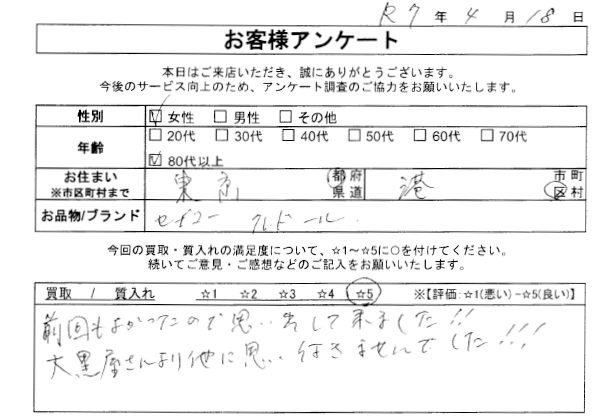 R7 年 4 月 18 日
お客様アンケート
本日はご来店いただき、誠にありがとうございます。
今後のサービス向上のため、アンケート調査のご協力をお願いいたします。
性別 ☑ 女性 □ 男性 □ その他
年齢 □ 20代 □ 30代 □ 40代 □ 50代 □ 60代 □ 70代
☑ 80代以上
お住まい ※市区町村まで 東京 都府県道 港 市町区村
お品物/ブランド セイコー クレドール
今回の買取・質入れの満足度について、☆1～☆5に○を付けてください。
続いてご意見・ご感想などのご記入をお願いいたします。
買取 / 質入れ ☆1 ☆2 ☆3 ☆4 ☆5 ※【評価:☆1(悪い)-☆5(良い)】
前回もよかったので思い出して来ました!!
大黒屋さんより他に思い行きませんでした!!!